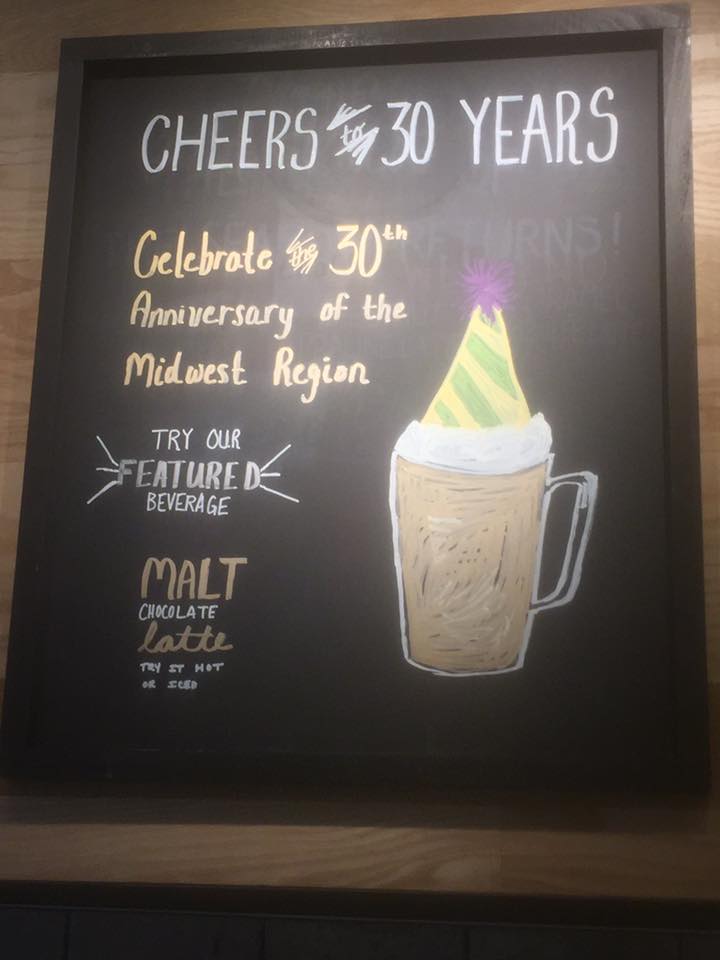 CHEERS to 30 YEARS
Celebrate the 30th
Anniversary of the
Midwest Region
TRY OUR
FEATURED
BEVERAGE
MALT
CHOCOLATE
latte
TRY IT HOT
OR ICED
RETURNS!